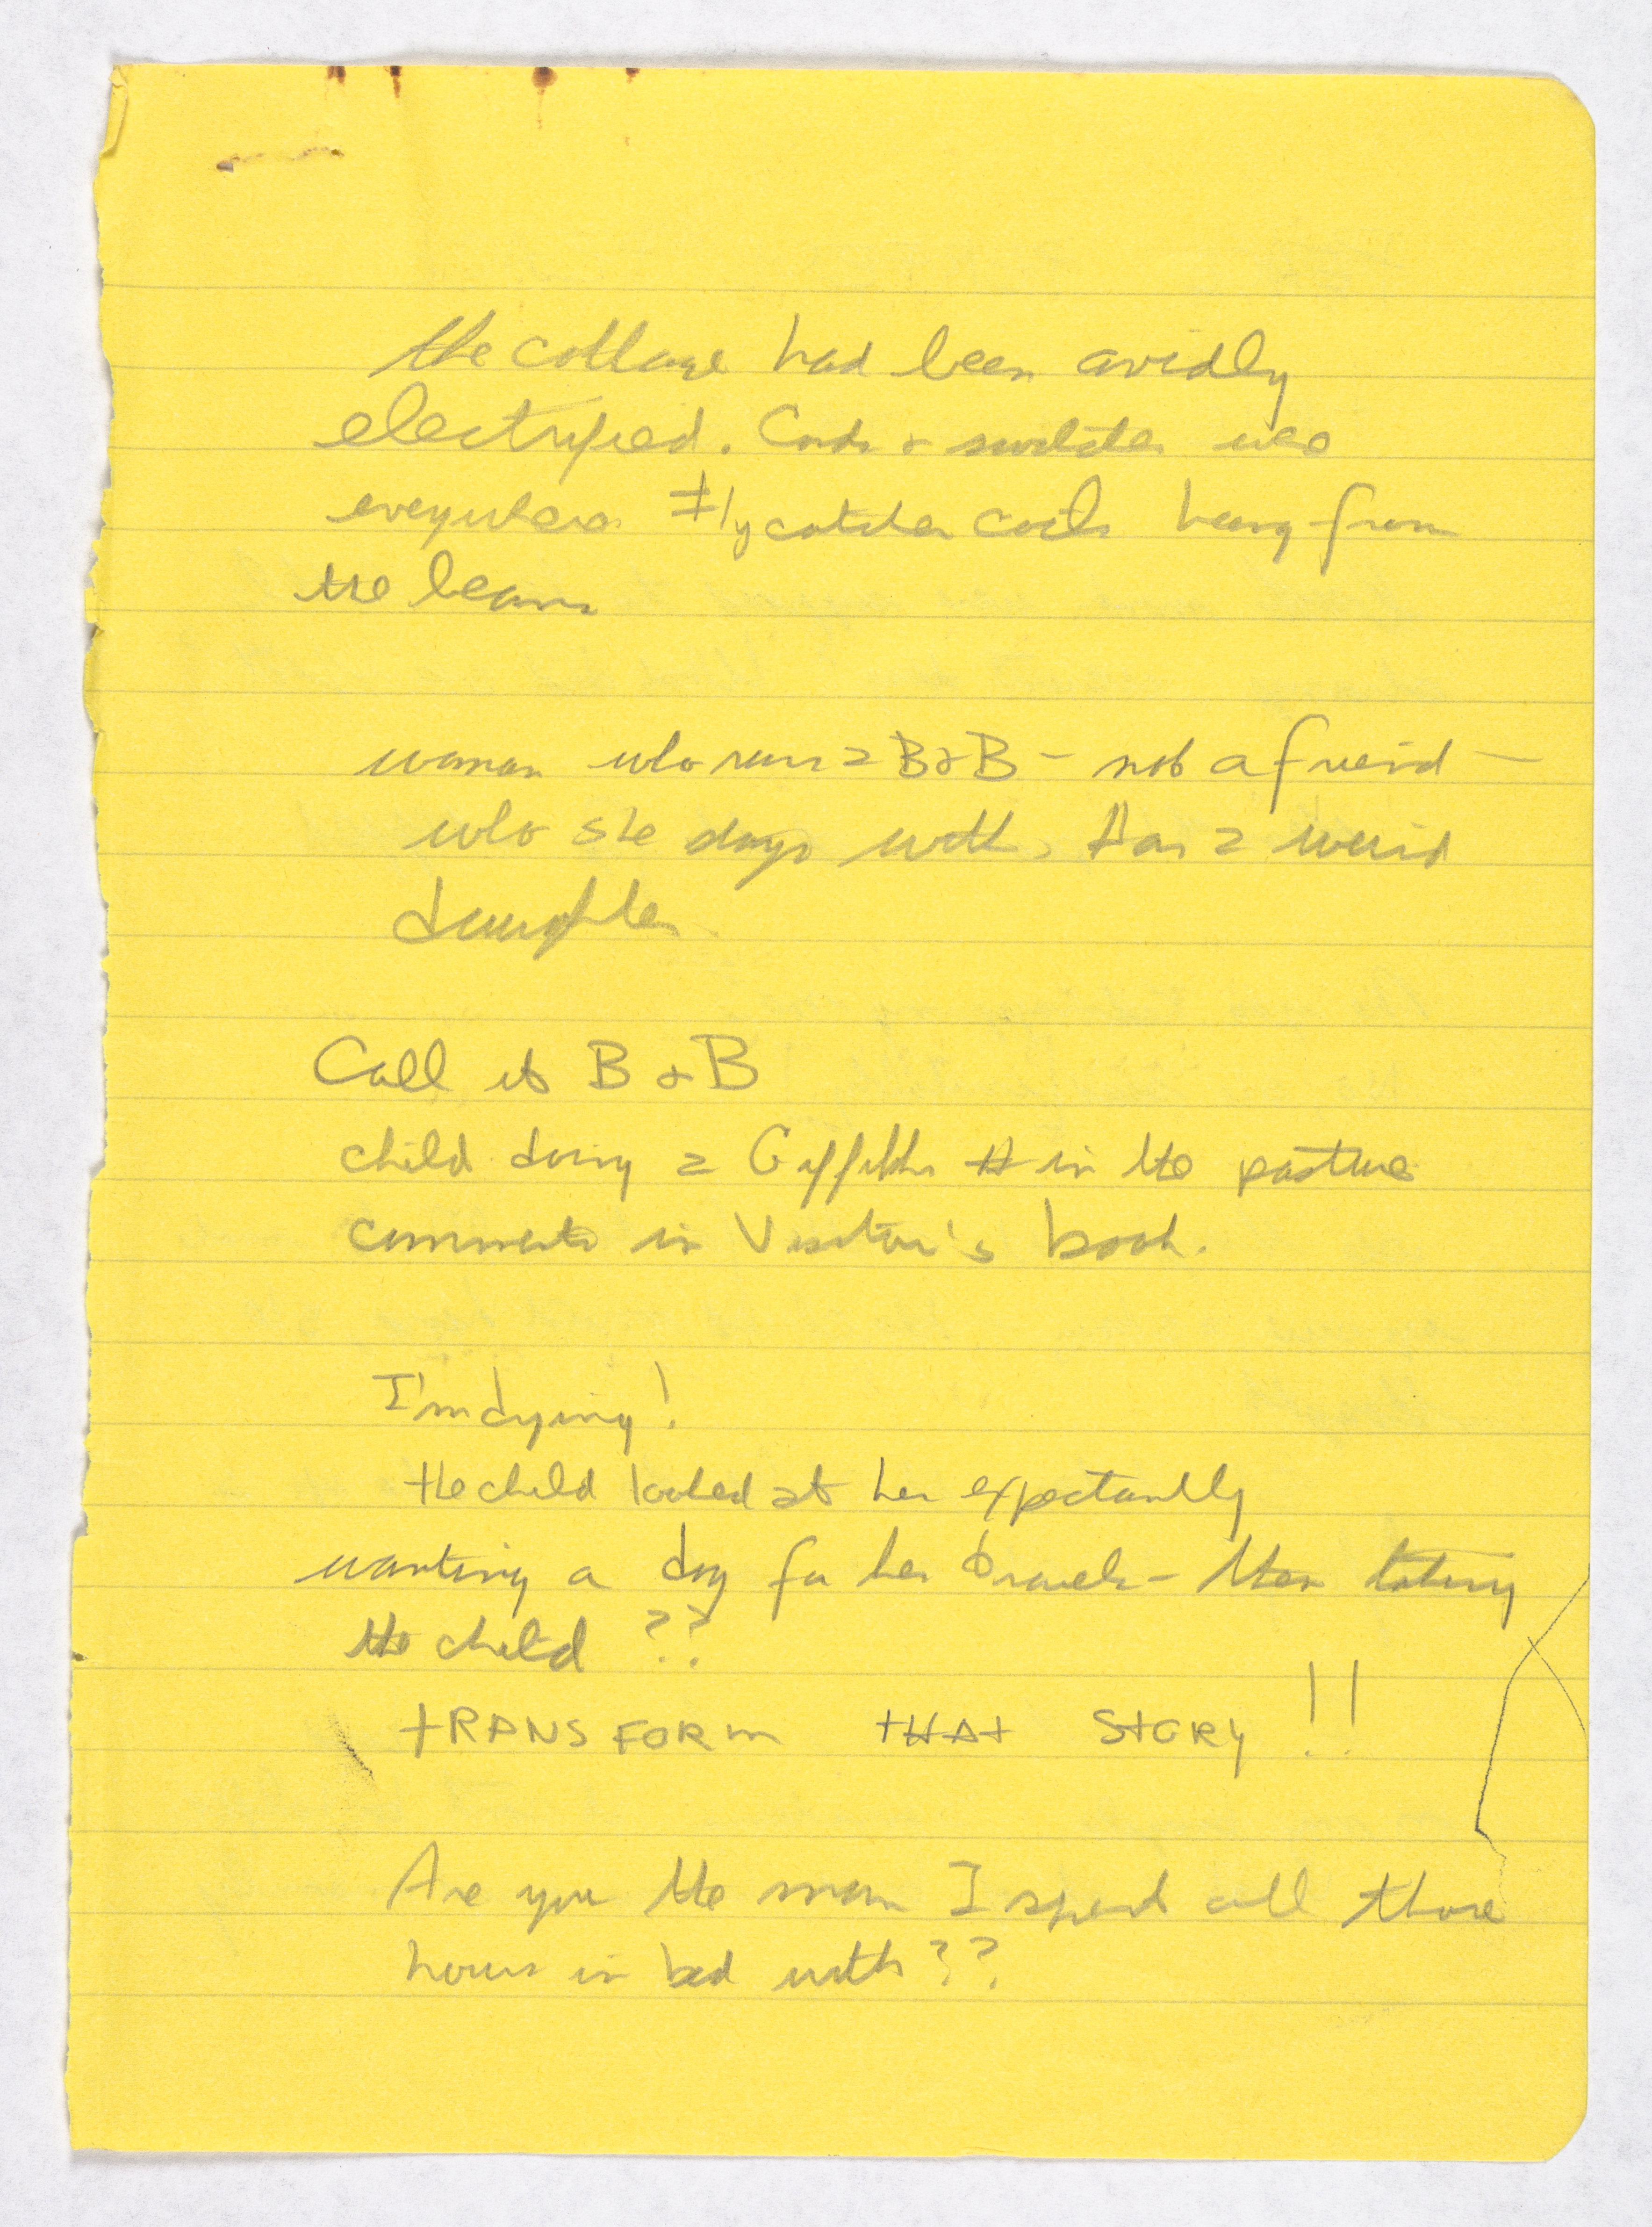 the cottage had been avidly
electrified. Cords & switches were
everywhere Flycatcher coils hung from
the beams
woman who runs a B&B - not a friend -
who she stays with. Has a weird
daughter
Call it B & B
child doing a in the pasture
comments in Visitor's book.
I'm dying!
the child looked at her expectantly
wanting a dog for her - then taking
the child ??
TRANSFORM THAT STORY!!
Are you the man I spent all those
hours in bed with??